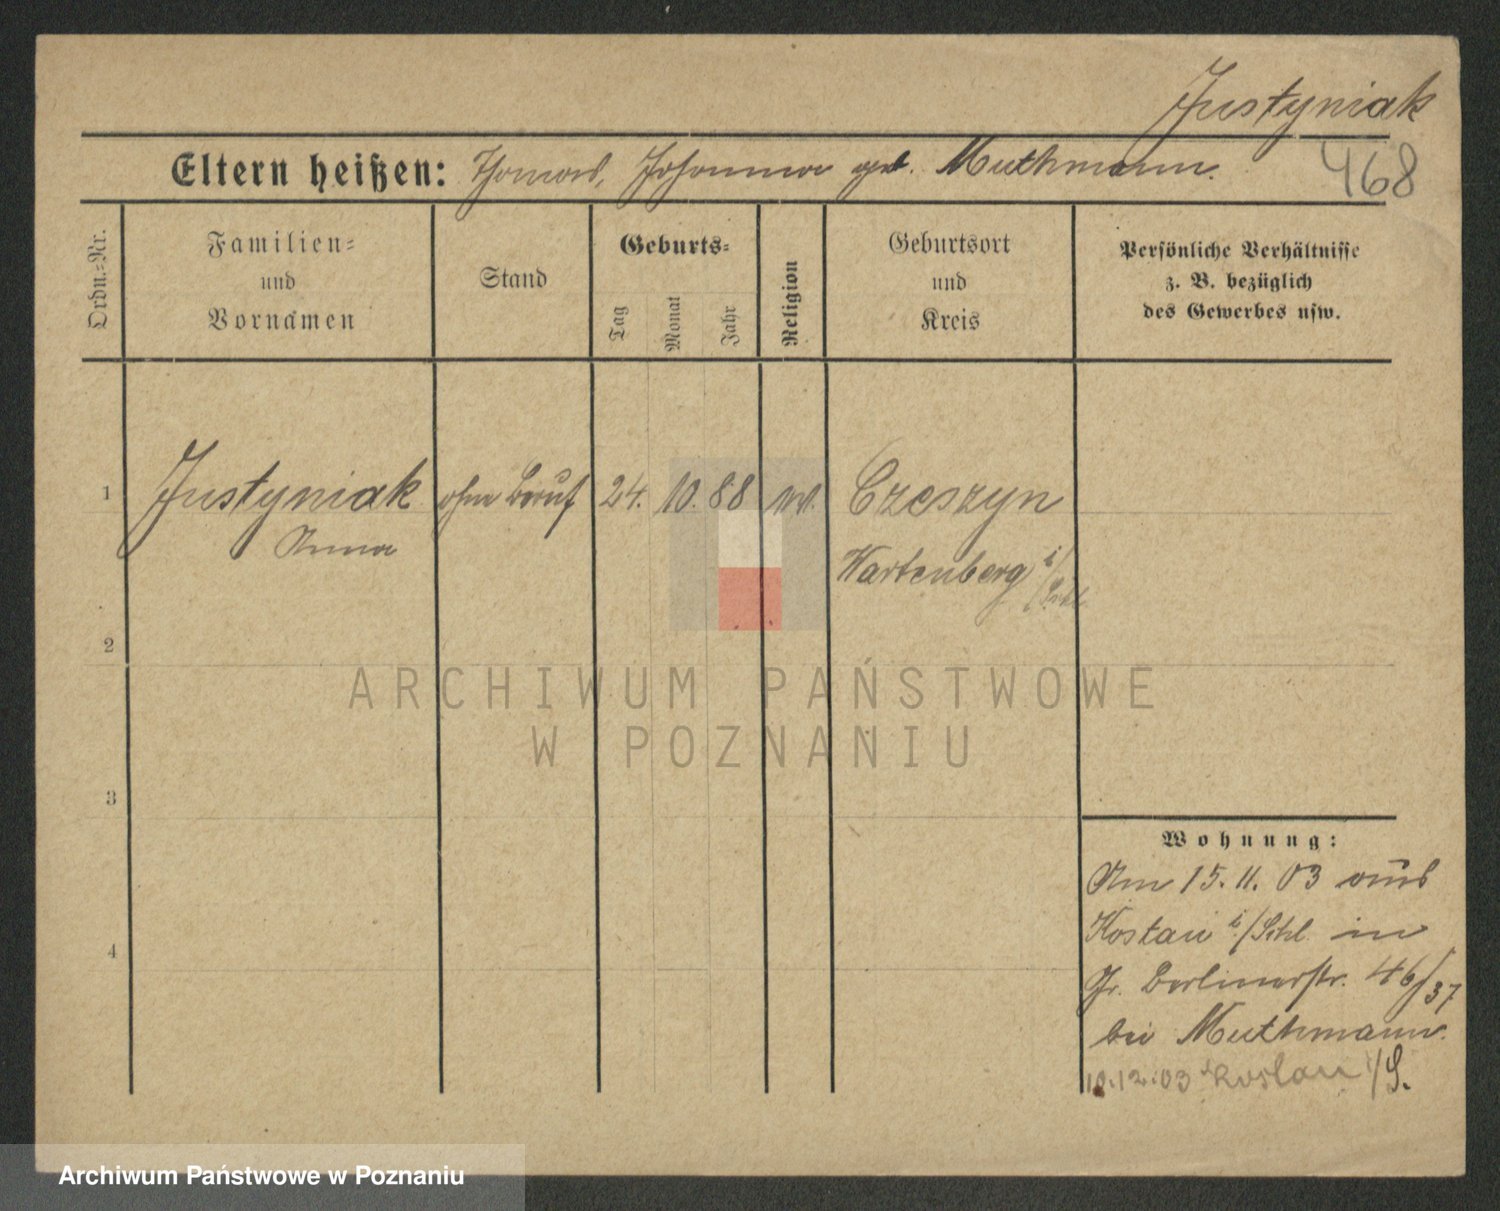 Justyniak
468
Eltern heißen: Thomas, Johanna geb. Muthmann.
Ordn.-Nr.
Familien-
und
Vornamen
Stand
Geburts-
Tag
Monat
Jahr
Religion
Geburtsort
und
Kreis
Persönliche Verhältnisse
z. B. bezüglich
des Gewerbes usw.
1 Justyniak ohne Beruf 24. 10. 88 Czeszyn
Anna
Wartenberg i/Schl.
2
3
4
ARCHIWUM PAŃSTWOWE
W POZNANIU
Wohnung:
Am 15. 11. 03 aus
Kostau i/Schl. in
Gr. Berlinerstr. 46/37
bei Muthmann.
10.12.03 Kostau i/S.
Archiwum Państwowe w Poznaniu